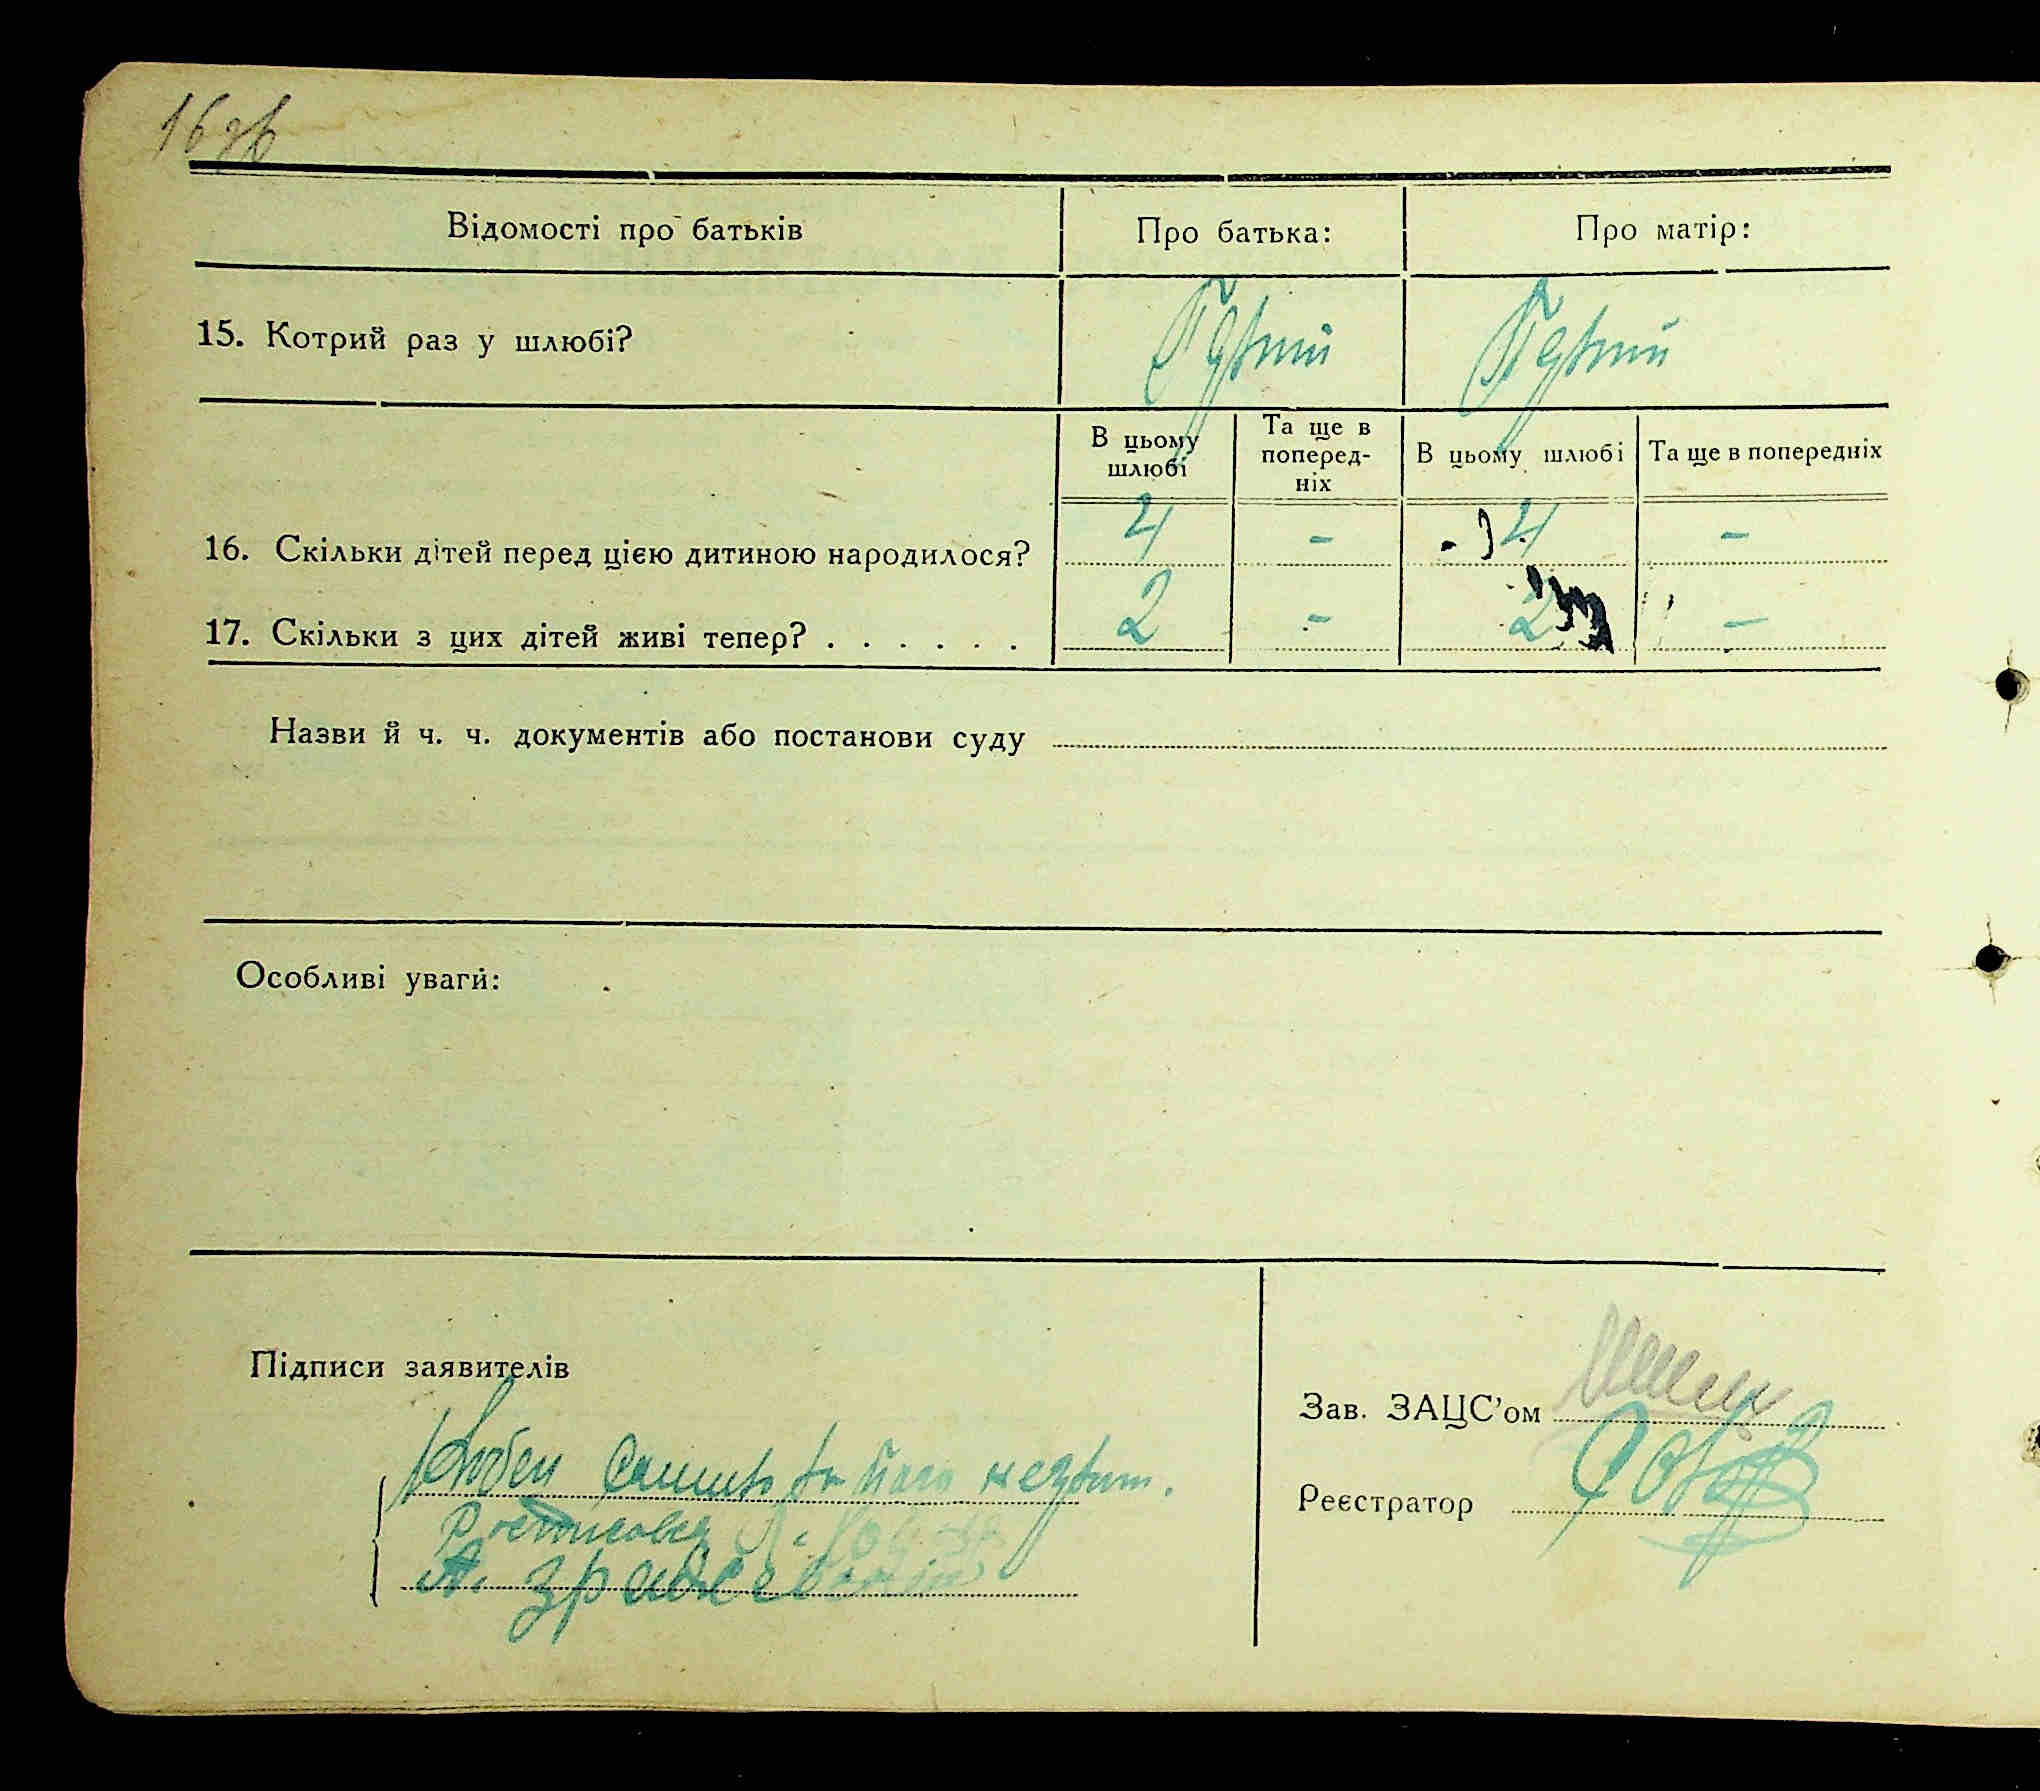 16 зв
Відомості про батьків
Про батька:
Про матір:
15. Котрий раз у шлюбі?
Первий
Первий
В цьому шлюбі
Та ще в поперед-
ніх
В цьому шлюбі
Та ще в попередніх
16. Скільки дітей перед цією дитиною народилося?
4 - 4 -
17. Скільки з цих дітей живі тепер? . . . . . .
2 - 2 -
Назви й ч. ч. документів або постанови суду
Особливі уваги:
Підписи заявителів
А.
Зав. ЗАЦС'ом
Реєстратор